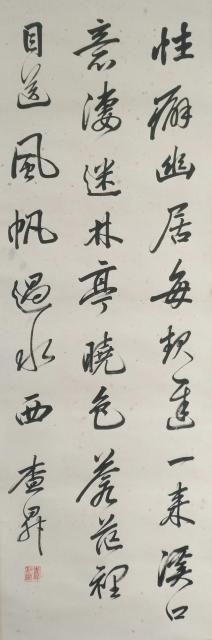 性癖幽居每契遲一来溪口
意淒迷林亭曉色蒼茫裡
目送風帆過水西
查昇